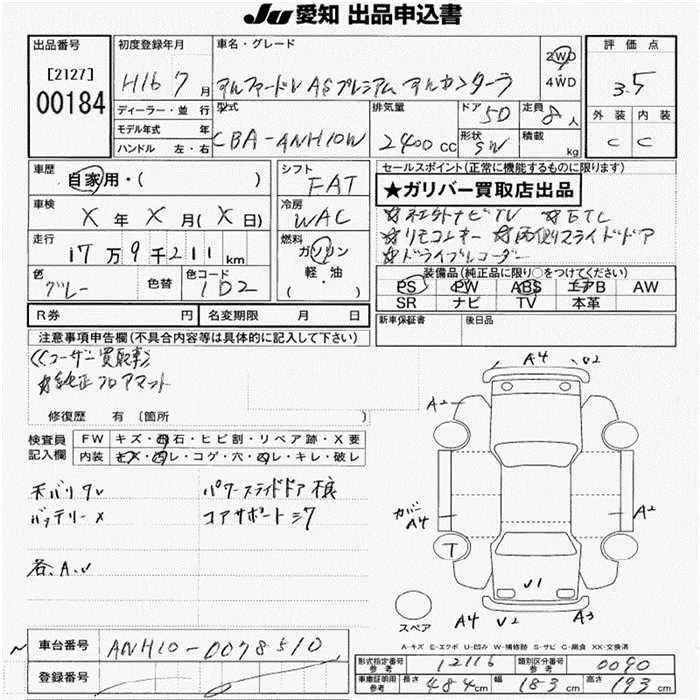 JU 愛知 出品申込書
出品番号
[2127]
00184
初度登録年月
H16 7月
車名・グレード
アルファードV ASプレミアム アルカンターラ
2WD
4WD
評価点
3.5
外装 内装
C C
ディーラー・並行
モデル年式 年
ハンドル 左・右
型式
CBA-ANH10W
排気量
2400cc
ドア 5D
形状 SW
定員 8人
積載 kg
車歴
自家用・( )
車検
X年X月(X日)
走行
17万9千211km
色
グレー
色替
色コード
1D2
シフト
FAT
冷房
WAC
燃料
ガソリン
軽・油
( )
セールスポイント(正常に機能するものに限ります)
★ガリバー買取店出品
☆社外ナビTV ☆ETC
☆リモコンキー ☆両側スライドドア
☆ドライブレコーダー
装備品(純正品に限り○をつけてください)
PS PW ABS エアB AW
SR ナビ TV 本革
新車保証書 後日品
R券 円 名変期限 月 日
注意事項申告欄(不具合内容等は具体的に記入して下さい)
《ユーザー買取車》
☆純正フロアマット
修復歴 有 (箇所
検査員
記入欄
FW キズ・飛石・ヒビ割・リペア跡・X要
内装 キズ・凹レ・コゲ・穴・凹レ・キレ・破レ
天バリタレ パワースライドドア不良
バッテリーX コアサポートミワ
各.A.U
A4 U2
A2
カバー
A4
A2
T
U1
スペア
A4 U2 A3
A-キズ E-エクボ U-凹み W-補修跡 S-サビ C-腐食 XX-交換済
車台番号
ANH10-0078510
登録番号
形式指定番号
参考
12116
類別区分番号
参考
0090
車庫証明用
参考
長さ 484cm 幅 183cm 高さ 193cm